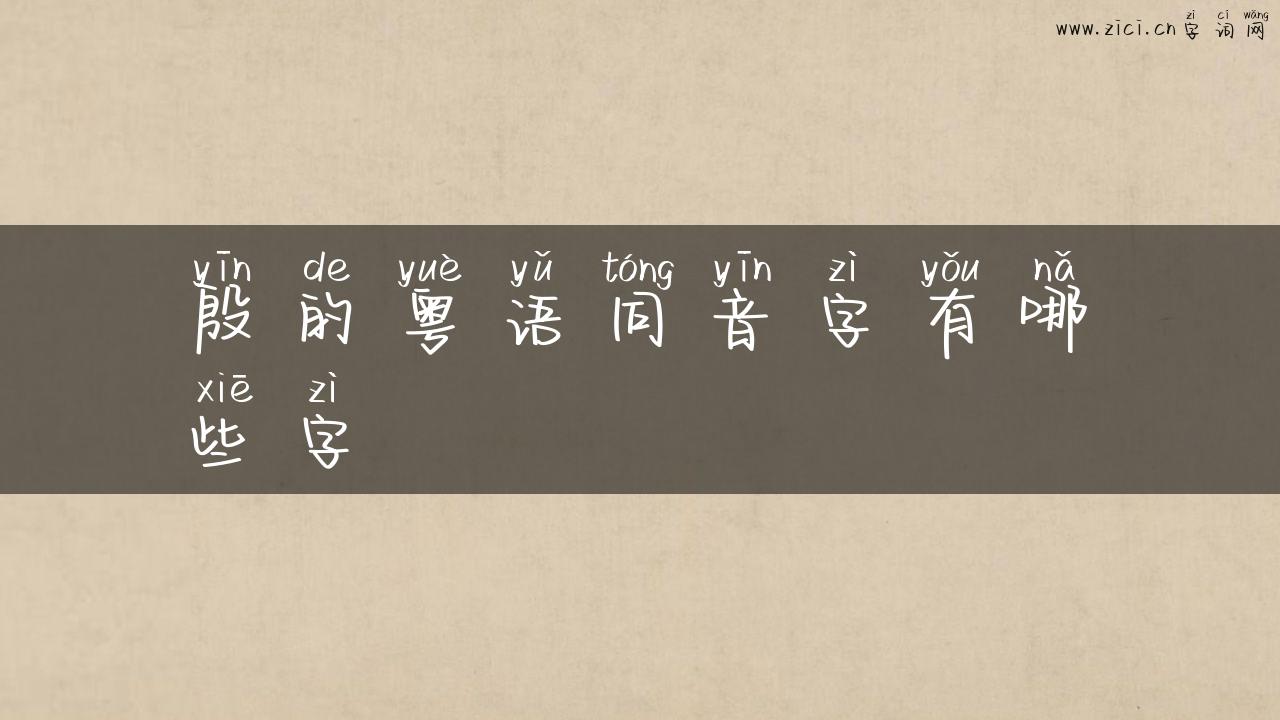 zì cí wǎng
www.zici.cn 字词网
yīn de yuè yǔ tóng yīn zì yǒu nǎ
殷的粤语同音字有哪
xiē zì
些字